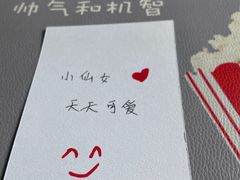 帅气和机智
小仙女
天天可爱